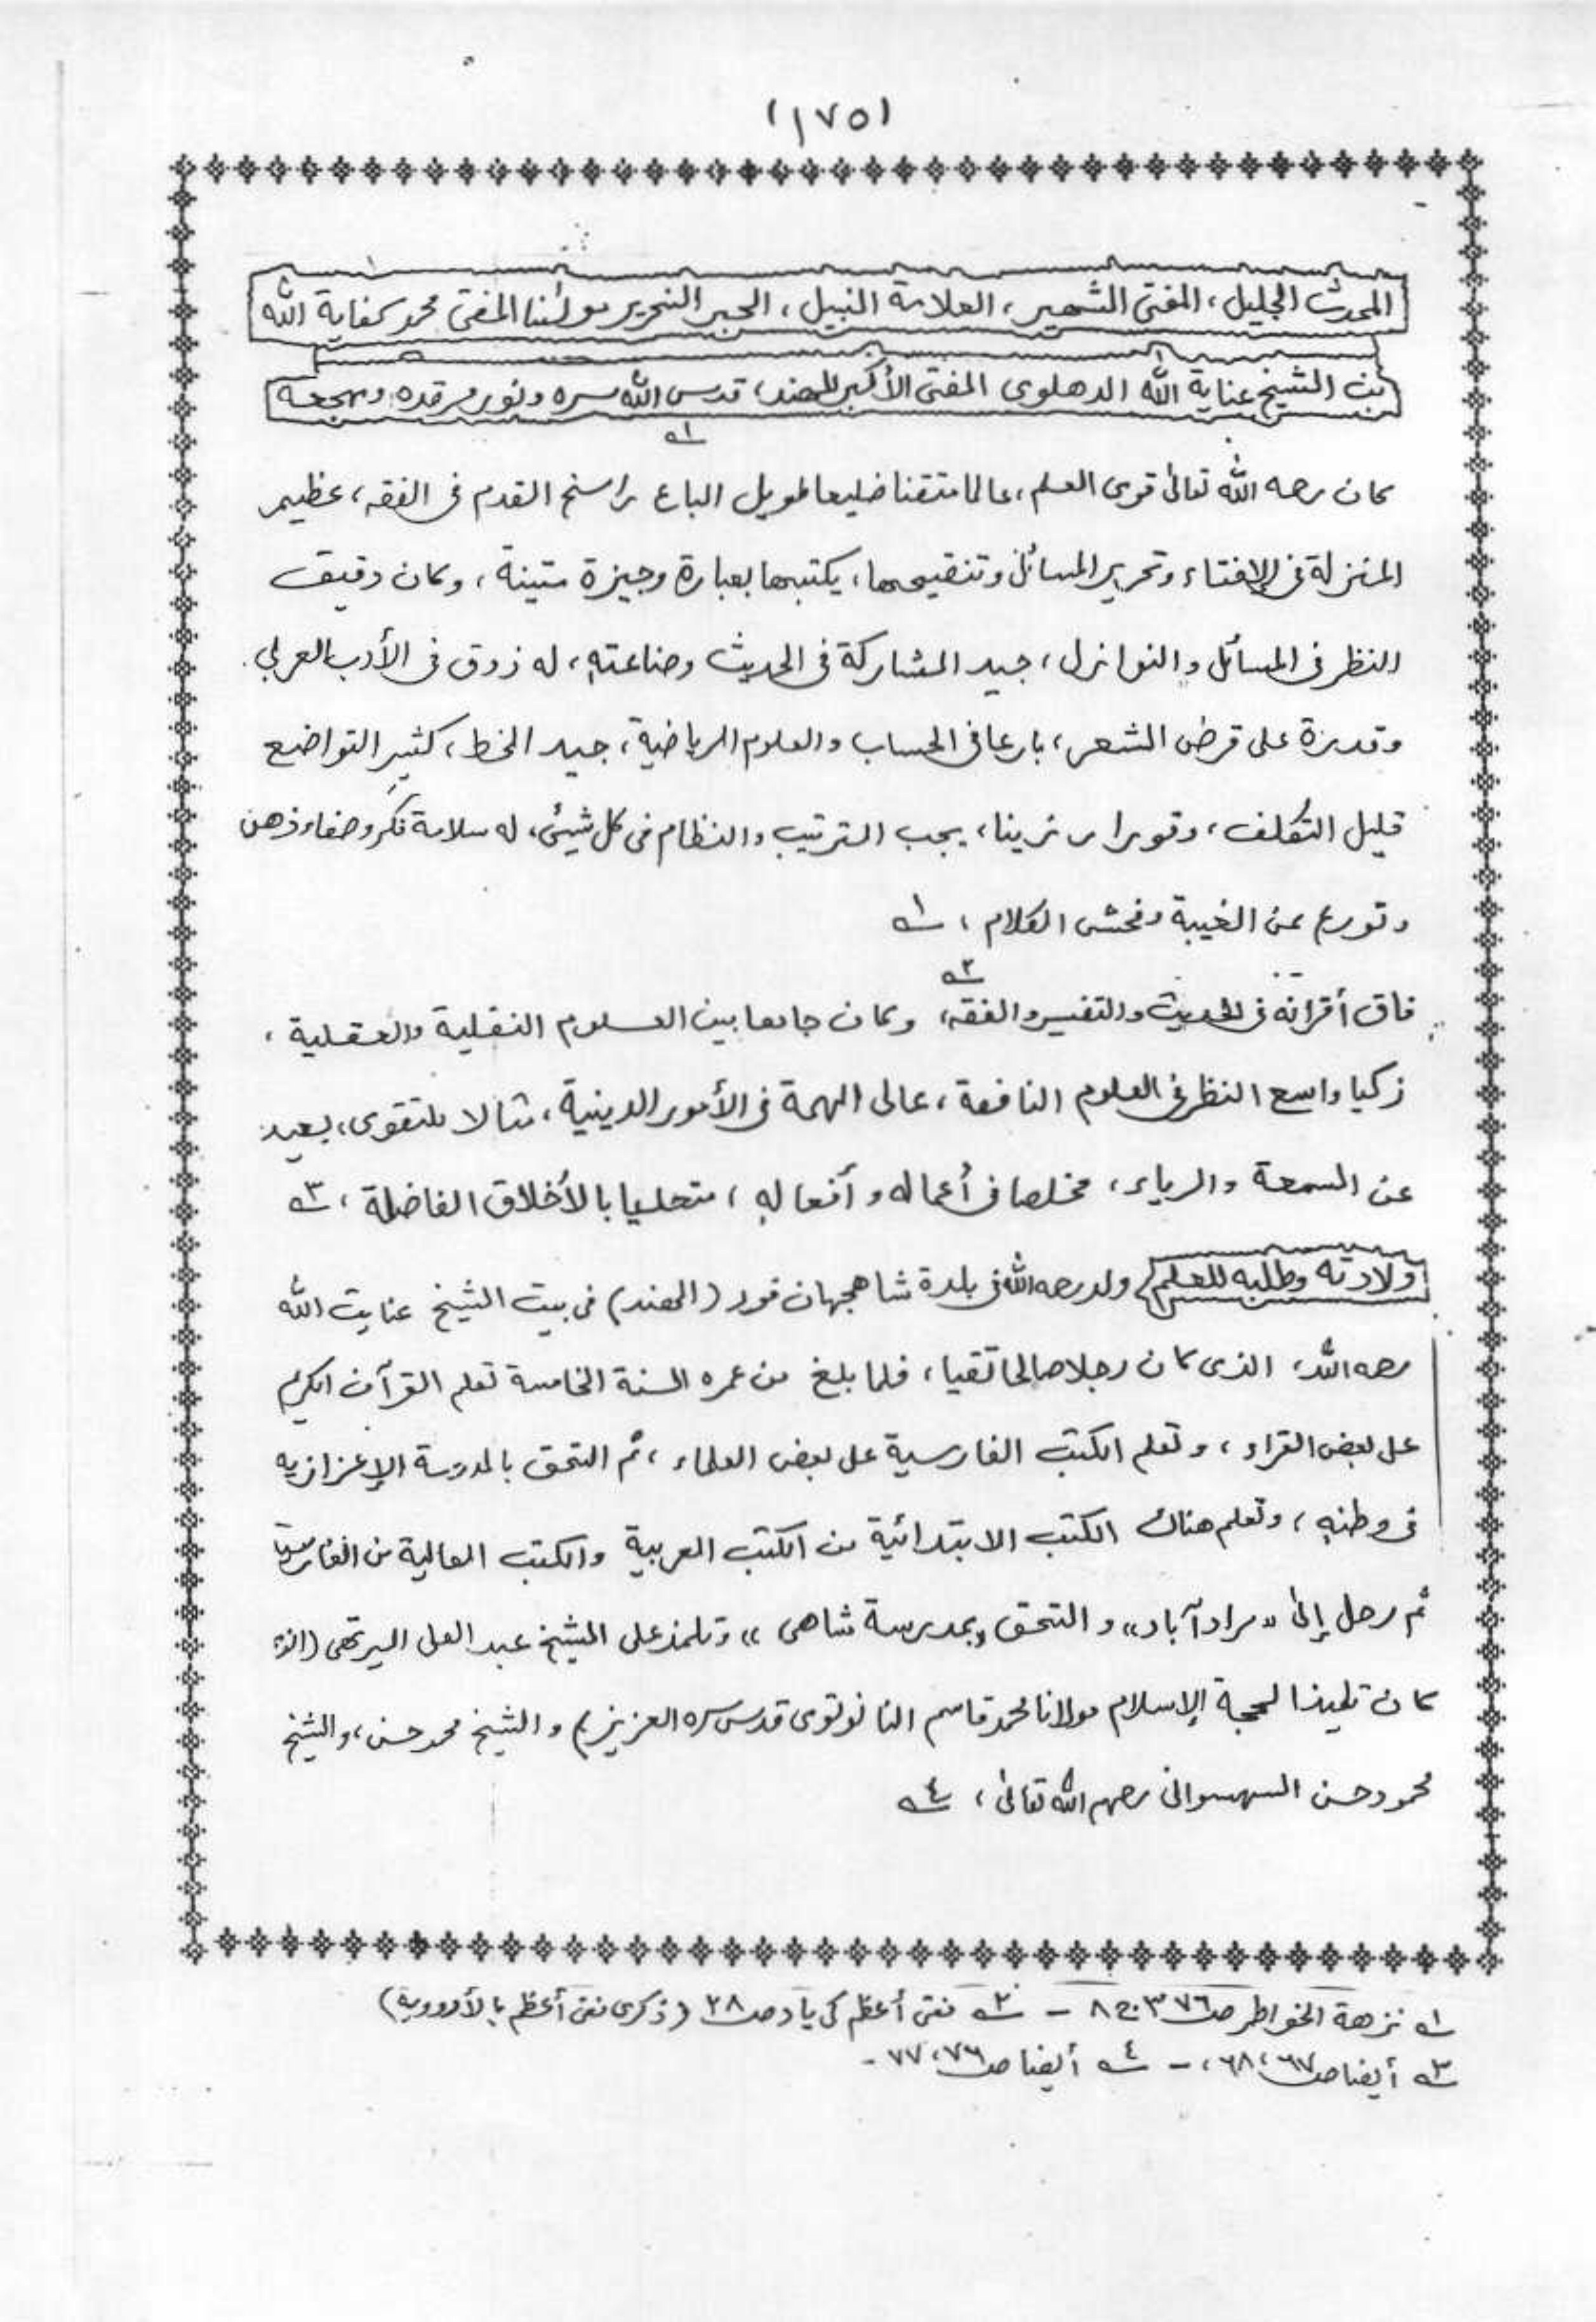 (١٧٥)
المحدث الجليل، المفتى الشهير، العلامة النبيل، الحبر النحرير مولٰنا المفتى محمد كفاية الله
بن الشيخ عناية الله الدهلوى المفتى الأكبر للهند، قدس الله سره ونور مرقده ومهجعه
١ه
كان رحمه الله تعالىٰ قوى العلم، عالما متقنا ضليعا طويل الباع راسخ القدم فى الفقه، عظيم
المنزلة فى الإفتاء وتحرير المسائل وتنقيحها، يكتبها بعبارة وجيزة متينة، وكان دقيق
النظر فى المسائل والنوازل، جيد المشاركة فى الحديث وصناعته، له ذوق فى الأدب العربي
وقدرة على قرض الشعر، بارعا فى الحساب والعلوم الرياضية، جيد الخط، كثير التواضع
قليل التكلف، وقورا رزينا، يحب الترتيب والنظام فى كل شيئ، له سلامة فكر وصفاء ذهن
وتورع عن الغيبة وفحش الكلام، ١ه
فاق أقرانه فى الحديث والتفسير والفقه، ٢ه وكان جامعا بين العلوم النقلية والعقلية،
زكيا واسع النظر فى العلوم النافعة، عالى الهمة فى الأمور الدينية، مثالا للتقوى، بعيد
عن السمعة والرياء، مخلصا فى أعماله وأفعاله، متحليا بالأخلاق الفاضلة، ٣ه
ولادته وطلبه للعلم ولد رحمه الله فى بلدة شاهجهان فور (الهند) فى بيت الشيخ عنايت الله
رحمه الله، الذى كان رجلا صالحا تقيا، فلما بلغ من عمره السنة الخامسة تعلم القرآن الكريم
على بعض القراء، وتعلم الكتب الفارسية على بعض العلماء، ثم التحق بالمدرسة الإعزازيه
فى وطنه، وتعلم هناك الكتب الابتدائية من الكتب العربية والكتب العالية من الفارسية
ثم رحل إلىٰ "مرادآباد" والتحق بمدرسة شاهى" وتلمذ على الشيخ عبد العلى الميرتهى (الذى
كان تلميذا لحجة الإسلام مولانا محمد قاسم النانوتوى قدس سره العزيز) والشيخ محمد حسن، والشيخ
محمود حسن السهسوانى رحمهم الله تعالىٰ، ٤ه
١ه نزهة الخواطر صـ ٣٧٦ ج ٨ - ٢ه مفتى أعظم كى ياد صـ ٢٨ (ذكرى مفتى أعظم بالأوردوية)
٣ه أيضا صـ ٦٧، ٦٨، - ٤ه أيضا صـ ٧٦، ٧٧ -